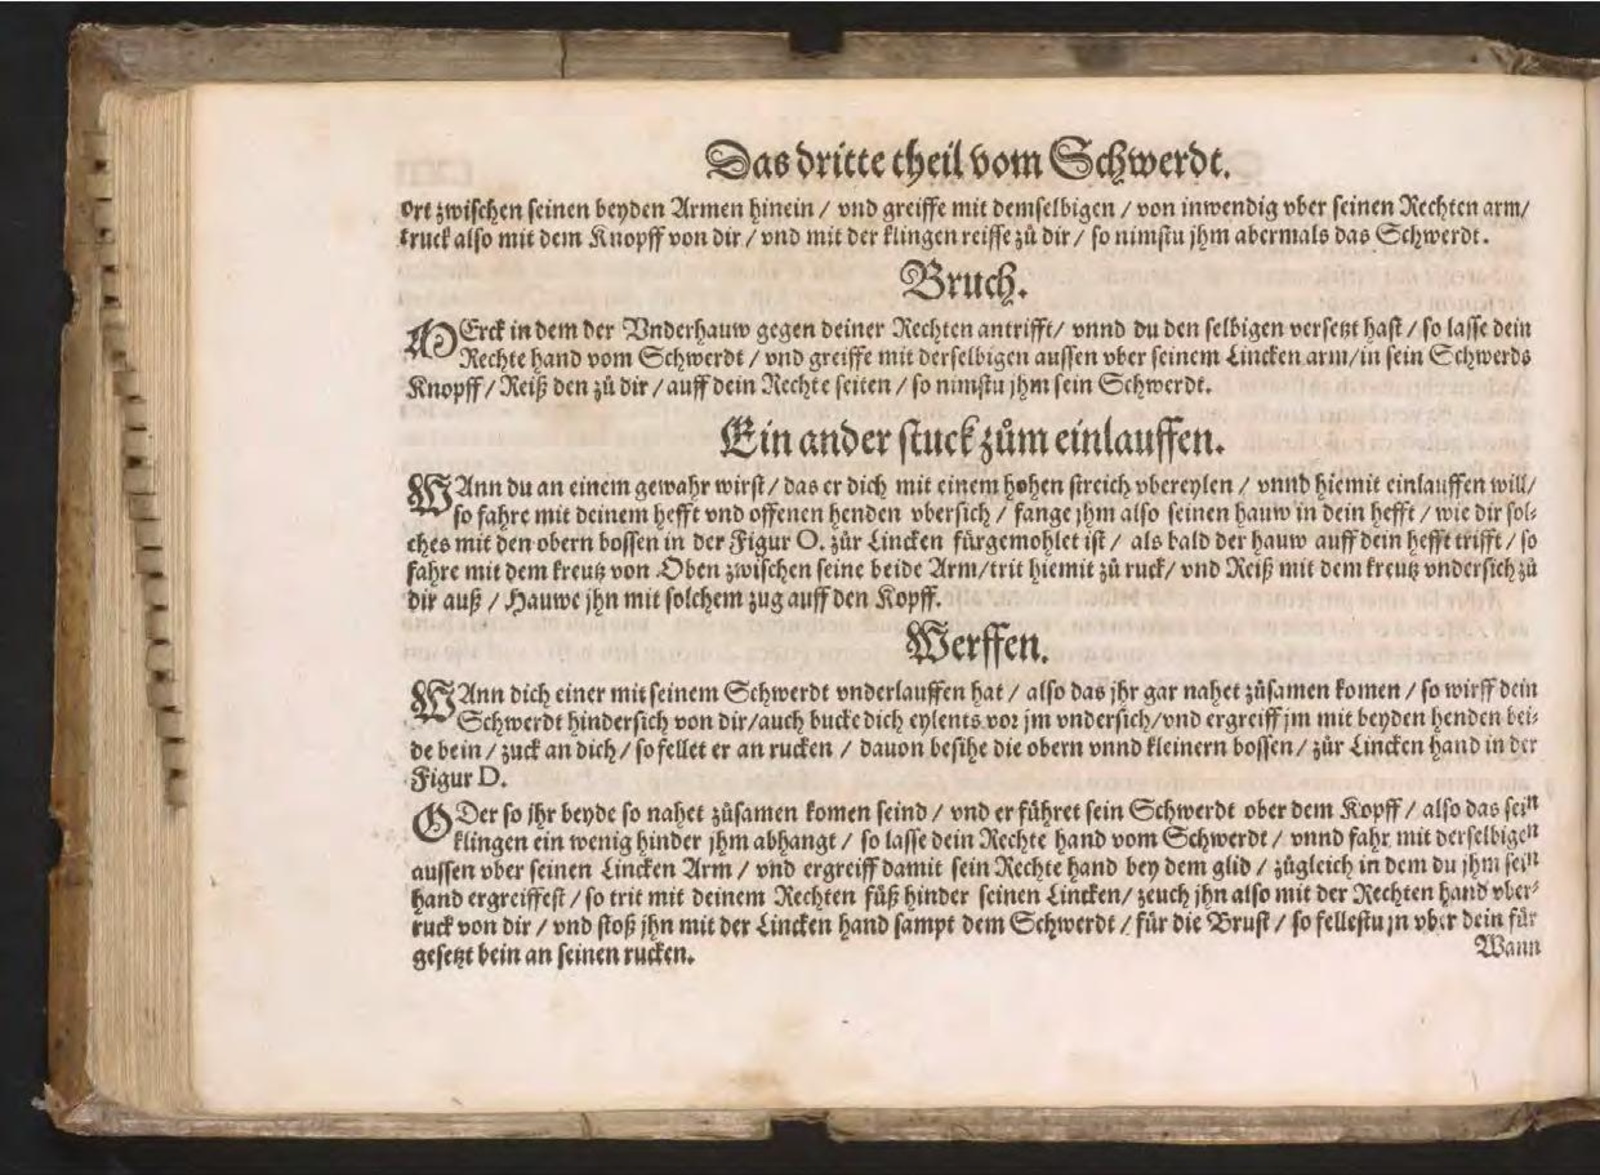 Das dritte theil vom Schwerdt.
ort zwischen seinen beyden Armen hinein / vnd greiffe mit demselbigen / von inwendig vber seinen Rechten arm/
truck also mit dem Knopff von dir / vnd mit der klingen reisse zů dir / so nimstu jhm abermals das Schwerdt.
Bruch.
MErck in dem der Vnderhauw gegen deiner Rechten antrifft/ vnnd du den selbigen versetzt hast / so lasse dein
Rechte hand vom Schwerdt / vnd greiffe mit derselbigen aussen vber seinem Lincken arm/in sein Schwerds
Knopff / Reiß den zů dir / auff dein Rechte seiten / so nimstu jhm sein Schwerdt.
Ein ander stuck zům einlauffen.
WAnn du an einem gewahr wirst / das er dich mit einem hohen streich vbereylen / vnnd hiemit einlauffen will/
so fahre mit deinem hefft vnd offenen henden vbersich / fange jhm also seinen hauw in dein hefft / wie dir sol-
ches mit den obern bossen in der Figur O. zůr Lincken fürgemohlet ist / als bald der hauw auff dein hefft trifft / so
fahre mit dem kreutz von Oben zwischen seine beide Arm/trit hiemit zů ruck/ vnd Reiß mit dem kreutz vndersich zů
dir auß / Hauwe jhn mit solchem zug auff den Kopff.
Werffen.
WAnn dich einer mit seinem Schwerdt vnderlauffen hat / also das jhr gar nahet zůsamen komen / so wirff dein
Schwerdt hindersich von dir/auch bucke dich eylents vor jm vndersich/vnd ergreiff jm mit beyden henden bei-
de bein / zuck an dich / so fellet er an rucken / dauon besihe die obern vnnd kleinern bossen / zůr Lincken hand in der
Figur D.
ODer so jhr beyde so nahet zůsamen komen seind / vnd er führet sein Schwerdt ober dem Kopff / also das sein
klingen ein wenig hinder jhm abhangt / so lasse dein Rechte hand vom Schwerdt / vnnd fahr mit derselbigen
aussen vber seinen Lincken Arm / vnd ergreiff damit sein Rechte hand bey dem glid / zůgleich in dem du jhm sein
hand ergreiffest / so trit mit deinem Rechten fůß hinder seinen Lincken/ zeuch jhn also mit der Rechten hand vber-
ruck von dir / vnd stoß jhn mit der Lincken hand sampt dem Schwerdt / für die Brust / so fellestu jn vber dein für
gesetzt bein an seinen rucken.
Wann